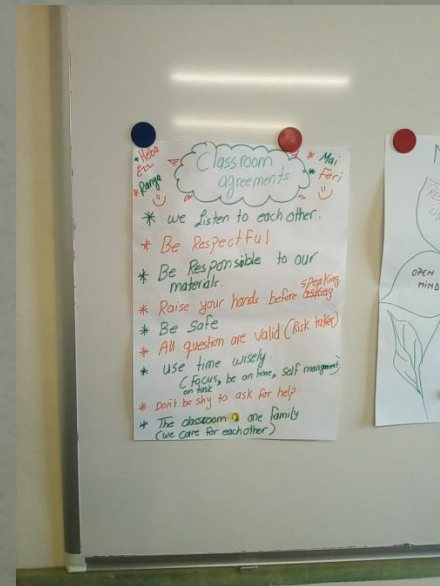 Heba
Ezz
Ranya
Classroom
agreements
Mai
Feri
* we listen to each other.
* Be Respectful
* Be Responsible to our
materials.
* Raise your hands before asking speaking
* Be safe
* All question are valid (Risk taker)
* use time wisely.
(Focus, be on time, self management)
on task
* Don't be shy to ask for help
* The classroom is one family
(we care for each other)
OPEN
MIND